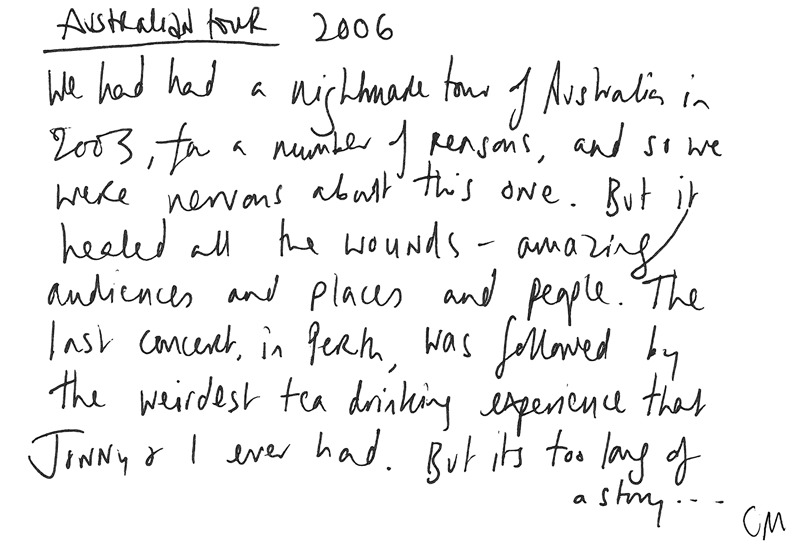 Australian tour 2006
We had had a nightmare tour of Australia in
2003, for a number of reasons, and so we
were nervous about this one. But it
healed all the wounds - amazing
audiences and places and people. The
last concert, in Perth, was followed by
the weirdest tea drinking experience that
Jonny & I ever had. But its too long of
a story...
CM